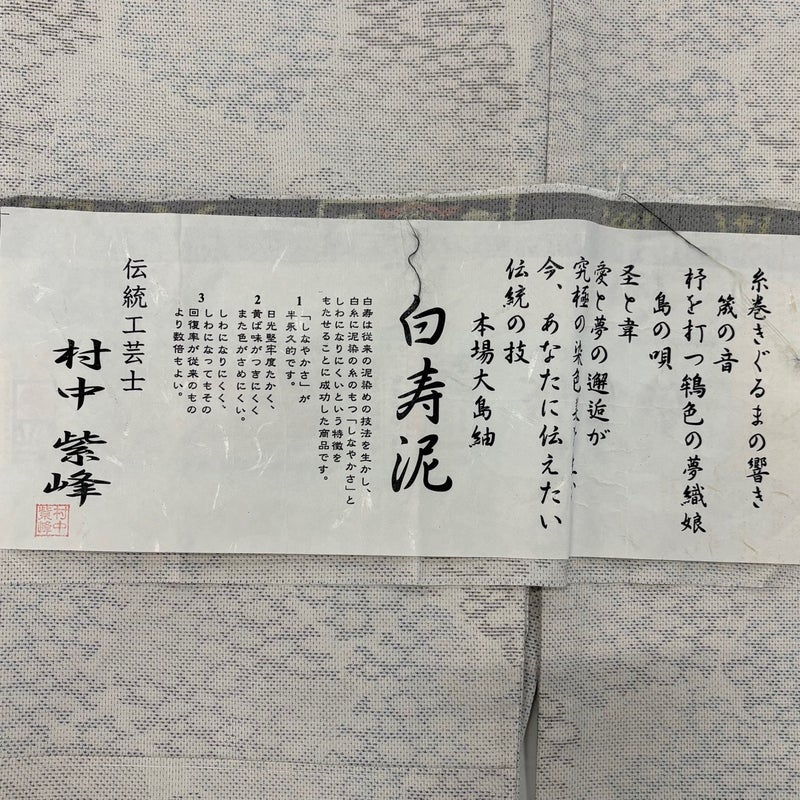 糸巻きぐるまの響き
筬の音
杼を打つ鴇色の夢織娘
島の唄
圣と韋
愛と夢の邂逅が
究極の染色
今、あなたに伝えたい
伝統の技
本場大島紬
白寿泥
白寿は従来の泥染めの技法を生かし、
白糸に泥染の糸のもつ「しなやかさ」と
しわになりにくいという特徴を
もたせることに成功した商品です。
1 「しなやかさ」が
半永久的です。
2 日光堅牢度たかく、
黄ば味がつきにくく
また色がさめにくい。
3 しわになりにくく、
しわになってもその
回復率が従来のもの
より数倍もよい。
伝統工芸士
村中 紫峰
村中
紫峰